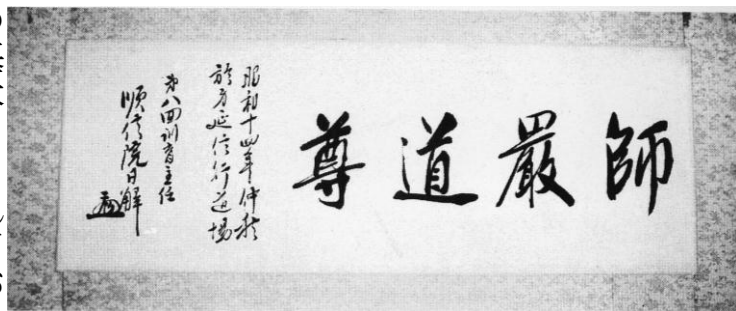 師嚴道尊
昭和十四年仲秋
於身延信行道場
第八回訓育主任
順信院日解